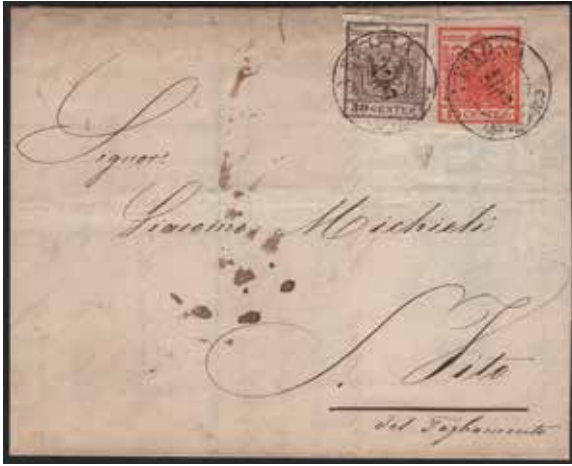 30 CENTES
CENTES
Signor:
Giacomo Michieli
S. Vito
del Tagliamento